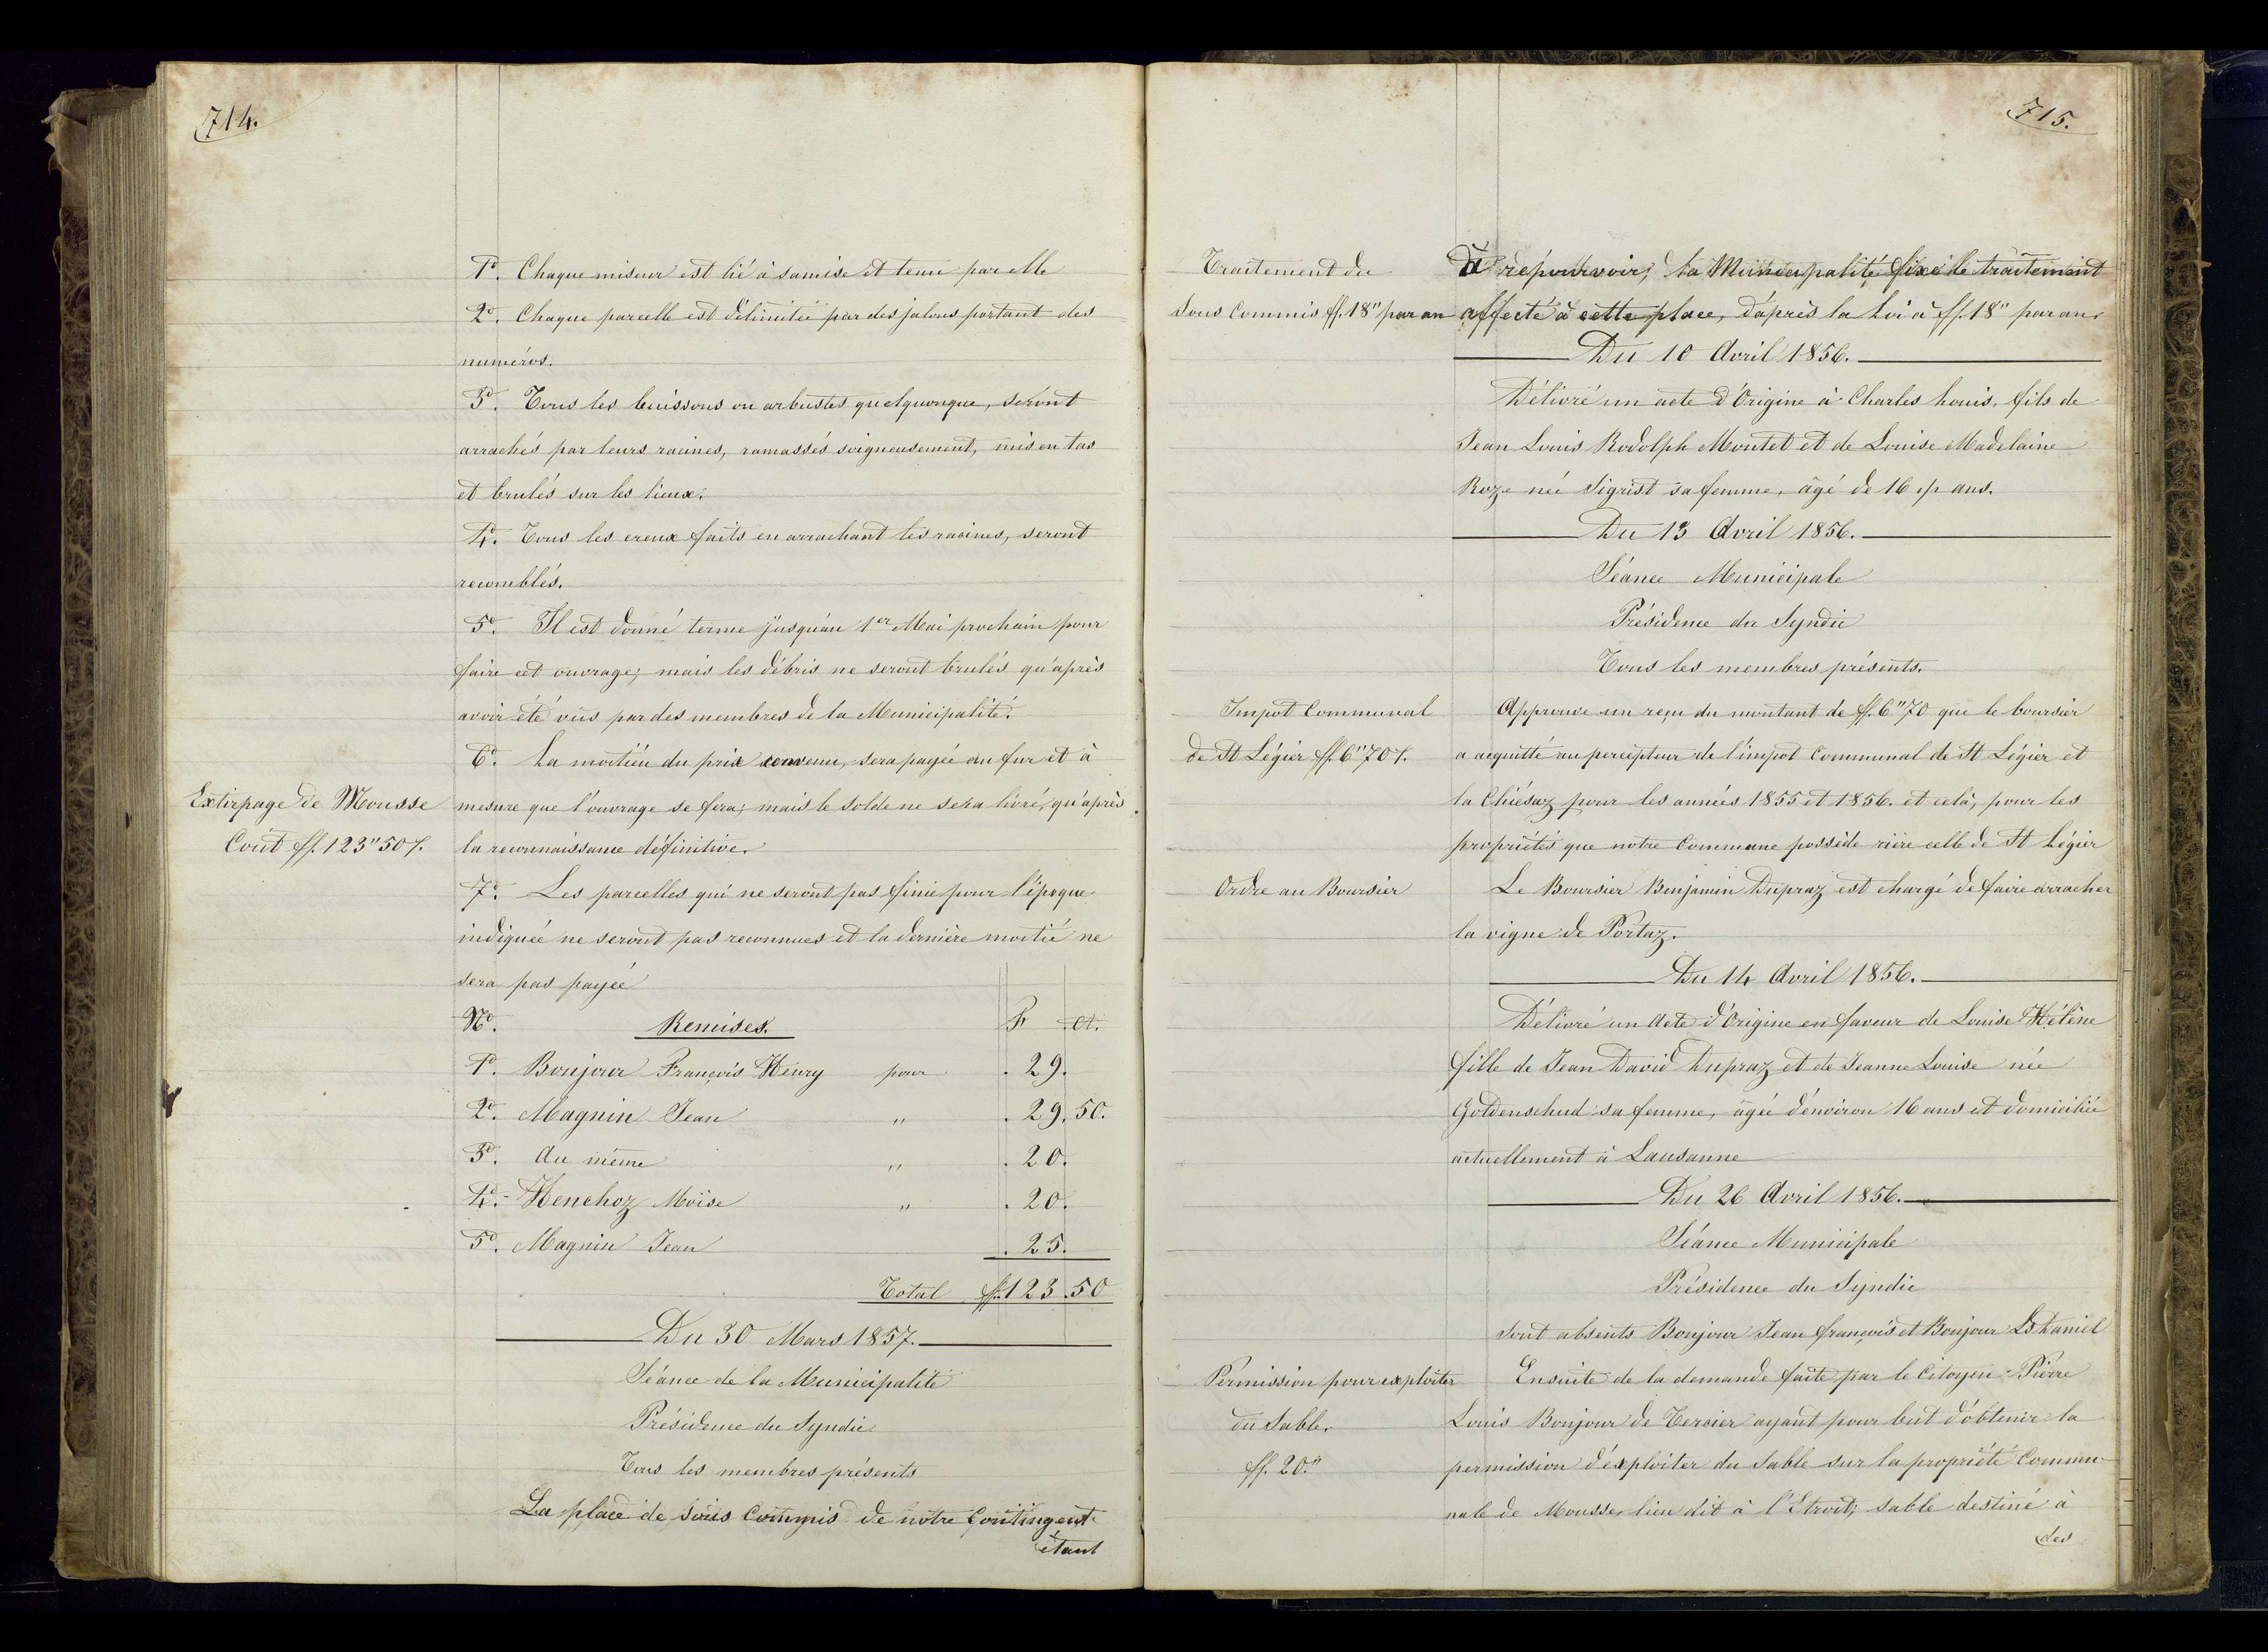 714.
1º. Chaque miseur est lié à sa mise et tenu par elle
2º. Chaque parcelle est délimitée par des jalons portant des
numéros.
3º. Tous les buissons ou arbustes quelquonque, seront
arrachés par leurs racines, ramassés soigneusement, mis en tas
et brulés sur les lieux.
4º. Tous les creux faits en arrachant les racines, seront
recomblés.
5º. Il est donné terme jusqu'au 1er Mai prochain pour
faire cet ouvrage; mais les débris ne seront brulés qu'après
avoir été vus par des membres de la Municipalité.
6º. La moitiéu du prix convenu, sera payée au fur et à
Extirpage de Mousse
mesure que l'ouvrage se fera; mais le solde ne sera livré, qu'après
Coût ff. 123"50 f.
la reconnaissance définitive.
7º. Les parcelles qui ne seront pas finie pour l'époque
indiquée ne seront pas reconnues et la dernière moitié ne
sera pas payée
Nº. Remises. F ct.
1º. Bonjour François Henry pour . 29.
2º. Magnin Jean " . 29. 50.
3º. Au même " . 20.
4º. Henchoz Moïse " . 20.
5º. Magnin Jean . 25.
Total ff. 123.50
Du 30 Mars 1857.
Séance de la Municipalité
Présidence du Syndic
Tous les membres présents
La place de Sous Commis de notre Contingent
étant
715.
Traitement du
à repourvoir, la Municipalité fixe le traitement
Sous Commis ff. 18" par an
affecté à cette place, d'après la Loi à ff. 18" par an.
Du 10 Avril 1856.
Délivré un acte d'Origine à Charles Louis, fils de
Jean Louis Rodolph Montet et de Louise Madelaine
Roze née Sigrist sa femme, âgé de 16 ans.
Du 13 Avril 1856.
Séance Municipale
Présidence du Syndic
Tous les membres présents.
Impot Communal
Approuve un reçu du montant de ff. 6"70 que le boursier
de St Légier ff. 6"70 f.
a acquitté au percepteur de l'impot Communal de St Légier et
la Chiésaz pour les années 1855 et 1856. et celà, pour les
propriétés que notre Commune possède rière celle de St Légier
Ordre au Boursier
Le Boursier Benjamin Dupraz est chargé de faire arracher
la vigne de Portaz.
Du 14 Avril 1856.
Délivré un Acte d'Origine en faveur de Louise Hélène
fille de Jean David Dupraz et de Jeanne Louise née
Goldenschud sa femme, âgée d'environ 16 ans et domiciliée
actuellement à Lausanne
Du 26 Avril 1856.
Séance Municipale
Présidence du Syndic
Sont absents Bonjour Jean françois et Bonjour Ls Daniel
Permission pour exploiter
Ensuite de la demande faite par le Citoyen Pierre
du Sable.
Louis Bonjour de Tercier ayant pour but d'obtenir la
ff. 20."
permission d'exploiter du Sable sur la propriété Commu-
nale de Mousse, lieu dit à l'Etroit; sable destiné à
des